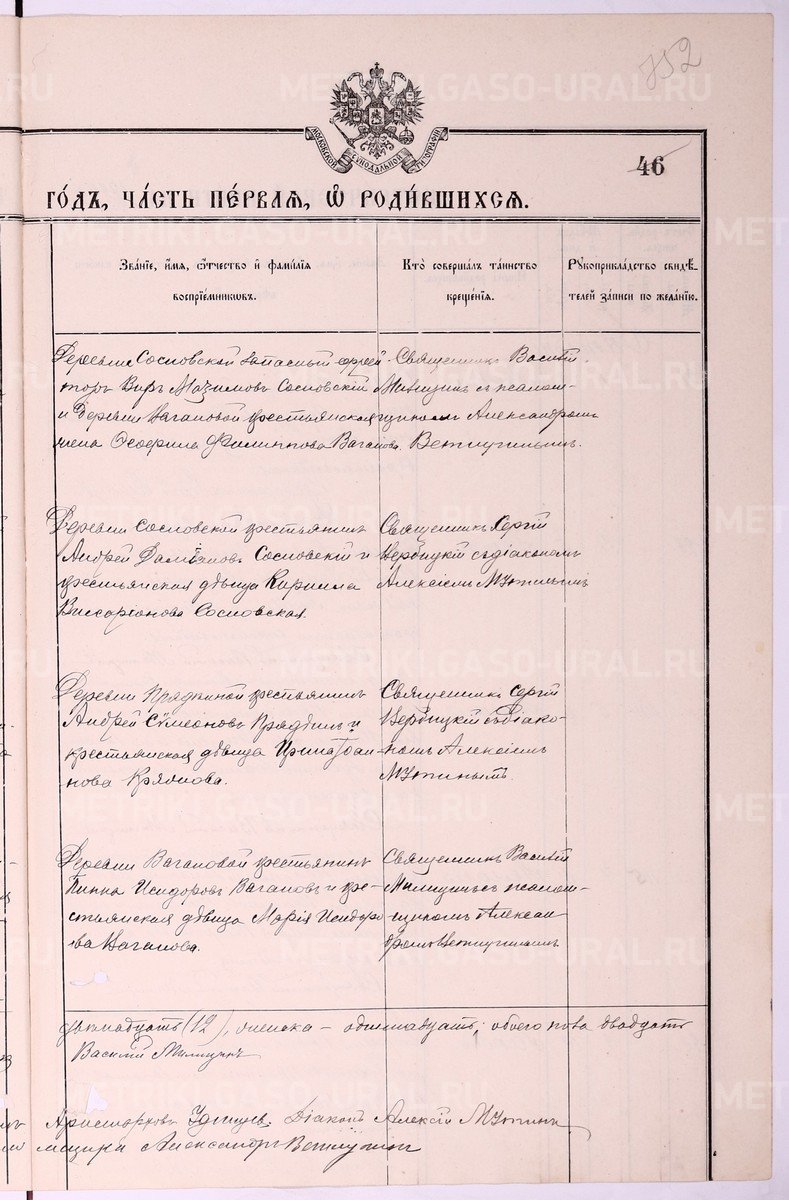 752
МОСКОВСКОЙ СѴНОДАЛЬНОЙ ТИПОГРАФІИ
46
ГОДЪ, ЧАСТЬ ПЕРВАЯ, Ѡ РОДИВШИХСЯ.
Званіе, имя, отчество и фамилія воспріемниковъ.
Кто совершалъ таинство крещенія.
Рукоприкладство свидѣтелей записи по желанію.
Деревни Сосновской запасный ефрей-
торъ Виръ Максимовъ Сосновскій
и деревни Вагановой крестьянская
жена Филиппова Ваганова.
Священникъ Василій
Милицинъ съ псалом-
щикомъ Александромъ
Ветлугинымъ.
Деревни Сосновской крестьянинъ
Андрей Даміановъ Сосновскій и
крестьянская дѣвица Кирилла
Виссаріонова Сосновская.
Священникъ Сергій
Вербицкій съ діакономъ
Алексіемъ Мутинымъ
Деревни Прядкиной крестьянинъ
Андрей Сѵмеоновъ Прядкинъ и
крестьянская дѣвица Ирина Іоан-
нова
Священникъ Сергій
Вербицкій съ діако-
номъ Алексіемъ
Мутинымъ.
Деревни Вагановой крестьянинъ
Пинна Исидоровъ Вагановъ и кре-
стьянская дѣвица Марія Исидоро-
ва Ваганова.
Священникъ Василій
Милицинъ съ псалом-
щикомъ Алексан-
дромъ Ветлугинымъ
двѣнадцать (12), женска – одиннадцать, обоего пола двадцать
Василій Милицинъ
Діаконъ Алексій Мутинъ
Александръ Ветлугинъ
METRIKI.GASO-URAL.RU